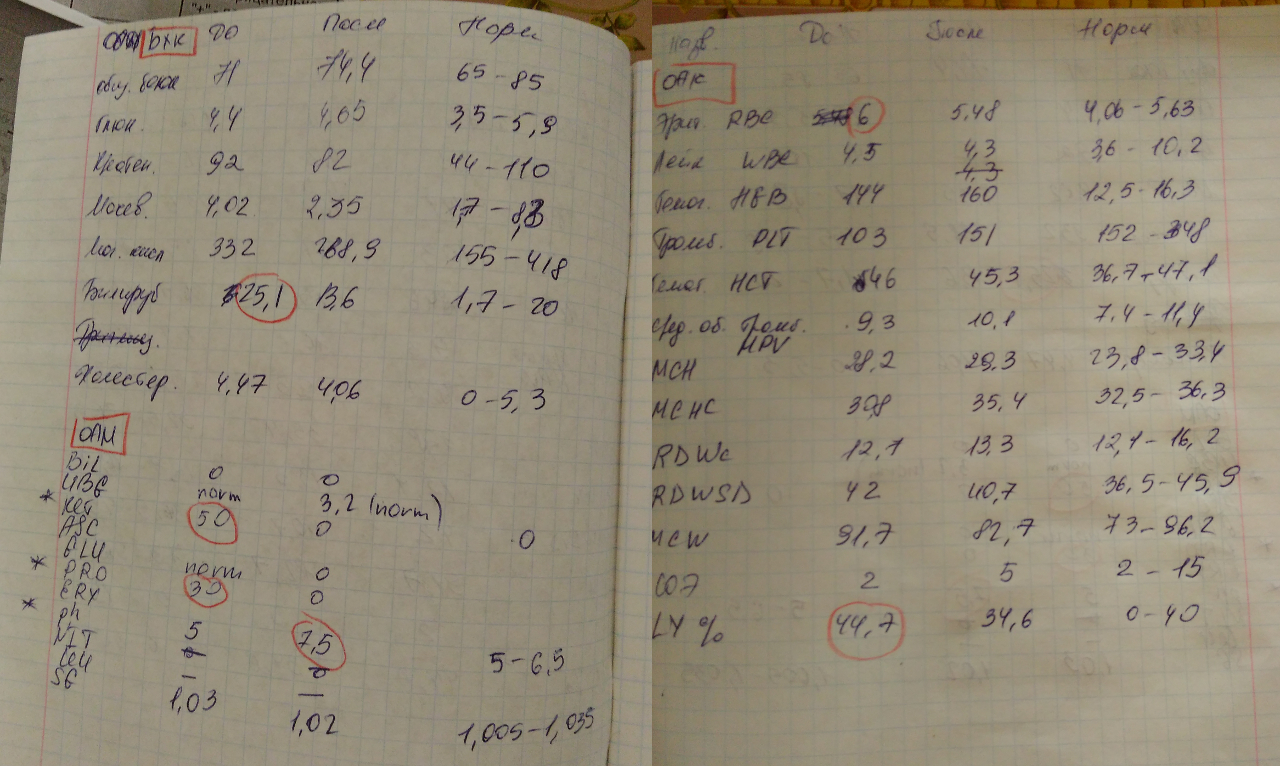 БХК До После Норм
общ. белок 71 74,4 65 - 85
Глюк. 4,4 4,65 3,5 - 5,9
Креатен. 92 82 44 - 110
Мочев. 4,02 2,35 1,7 - 8,3
Моч. кисл 332 268,9 155 - 418
Билируб 25,1 13,6 1,7 - 20
Холестер. 4,47 4,06 0 - 5,3
ОАМ
Bil 0 0
UBG norm 3,2 (norm)
Ket 50 0 0
ASC
GLU norm 0
PRO 30 0
ERY
ph 5 7,5 5 - 6,5
NIT
Leu – –
SG 1,03 1,02 1,005 - 1,035
Назв. До После Норм
ОАК
Эрит. RBC 6 5,48 4,06 - 5,63
Лейк WBC 4,5 4,3 3,6 - 10,2
4,3
Гемог. HGB 144 160 12,5 - 16,3
Тромб. PLT 103 151 152 - 348
Гемат. HCT 46 45,3 36,7 - 47,1
Сред. об. Тромб. 9,3 10,1 7,4 - 11,4
MPV
MCH 28,2 29,3 23,8 - 33,4
MCHC 30,8 35,4 32,5 - 36,3
RDWc 12,1 13,3 12,1 - 16,2
RDWSD 42 40,7 36,5 - 45,9
91,7 82,7 73 - 96,2
СОЭ 2 5 2 - 15
LY % 44,7 34,6 0 - 40